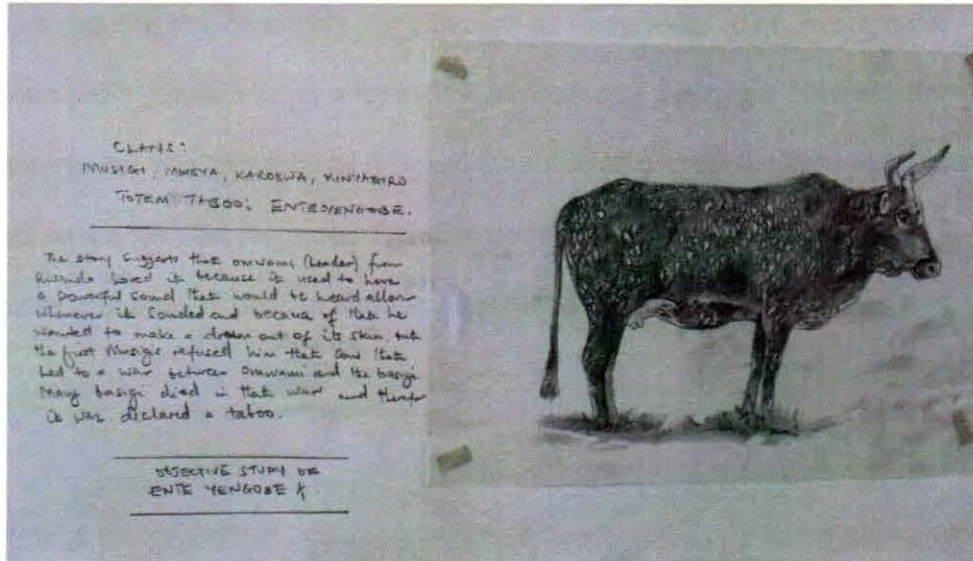 CLANS:
MUSIGI, MUSYA, KAROBWA, KINYAGIRO
TOTEM TABOO: ENTEYENGOBE.
The story suggests that omwami (leader) from
Rwanda loved it because it used to have
a powerful sound that would be heard allover
whenever it sounded and because of that he
wanted to make a drum out of its skin. but
the first Musigi refused him that cow that
led to a war between Omwami and the basigi
many basigi died in that war and therefor
it was declared a taboo.
OBJECTIVE STUDY OF
ENTE YENGOBE